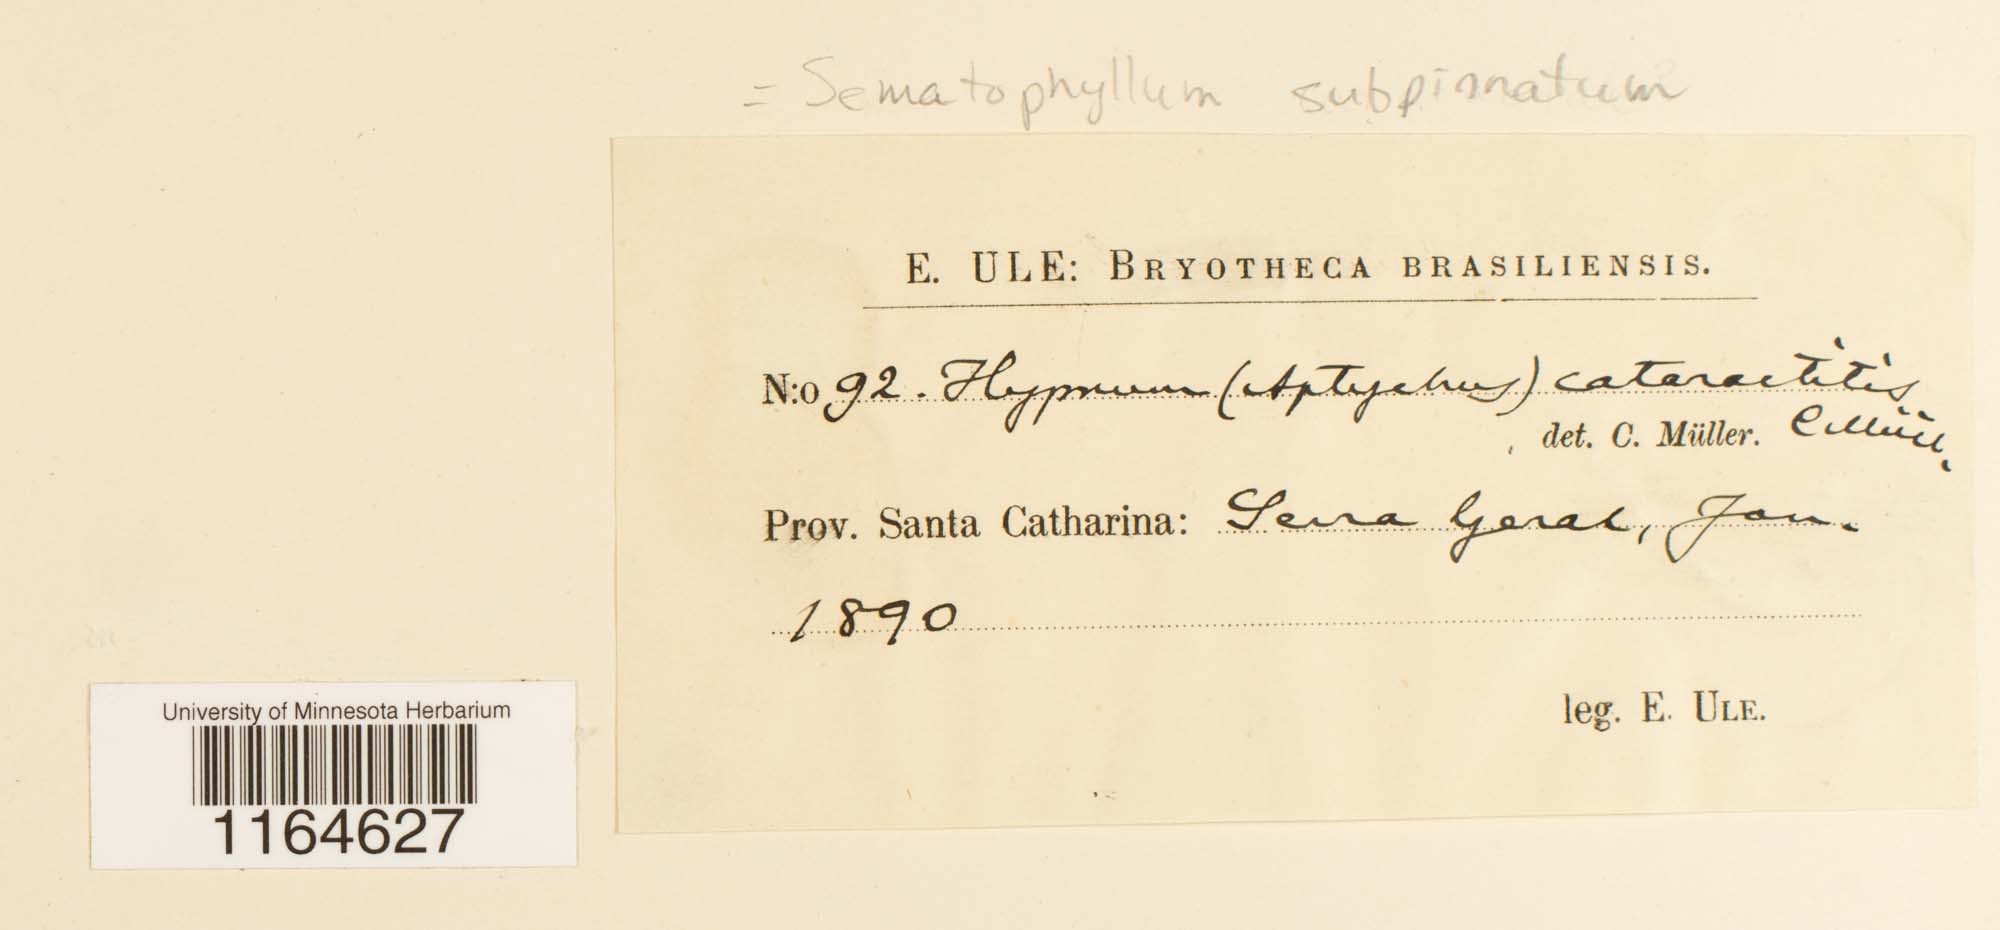 = Sematophyllum subpinnatum
E. ULE: BRYOTHECA BRASILIENSIS.
N:o 92. Hypnum (Aptychus) cataractitis
det. C. Müller. C. Müll.
Prov. Santa Catharina: Serra Geral, Jan.
1890
leg. E. ULE.
University of Minnesota Herbarium
1164627